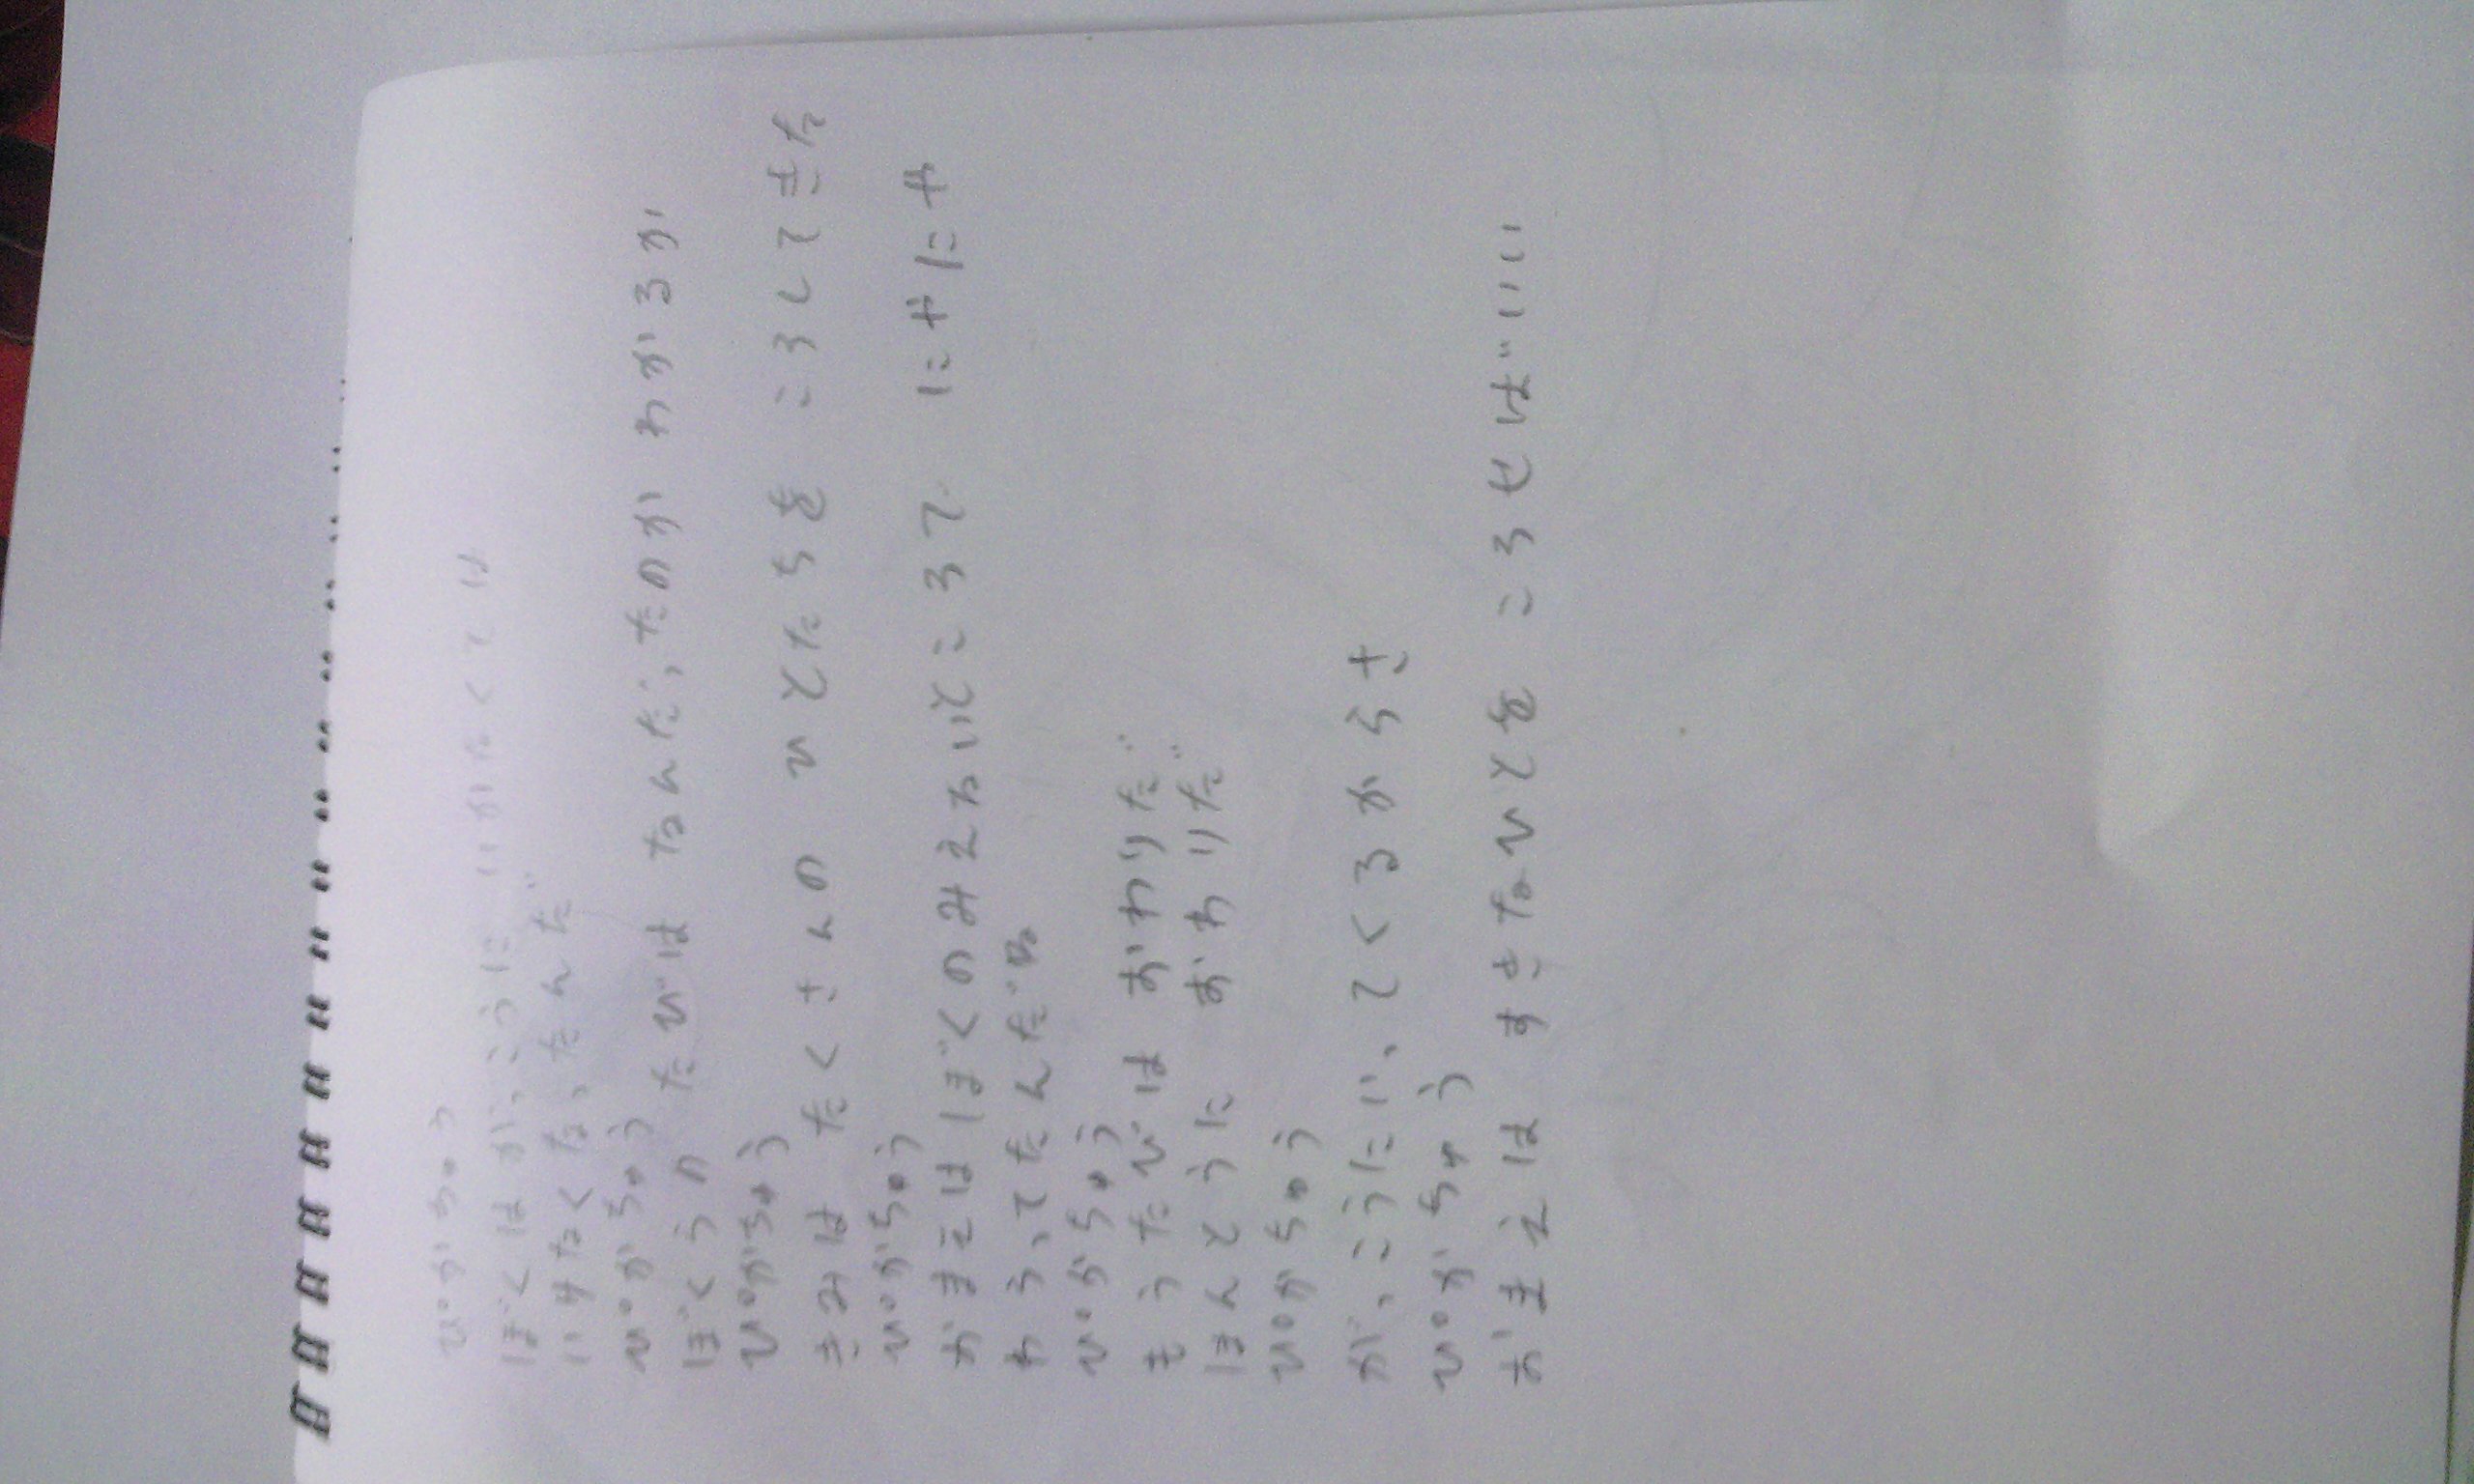 ぴかちゅう
ぼくは がっこうに いかなくては
いけなくなったんだ
ぴかちゅう
ぼくらの たびは なんだったのか わかるか
ぴかちゅう
きみは たくさんの ひとたちを ころしてきた
ぴかちゅう
おまえは ぼくのみえないところで にやにや
わらってたんだな
ぴかちゅう
もうたびは おわりだ
ほんとうに おわりだ
ぴかちゅう
がっこうにいってくるからさ
ぴかちゅう
おまえは すきなひとを ころせばいい